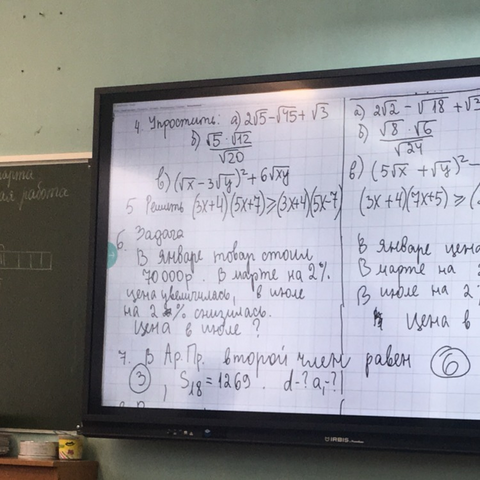 4. Упростить: а) 2√5 - √45 + √3
б) √5 · √12 / √20
в) (√x - 3√y)² + 6√xy
5 Решить (3x+4)(5x+7) ≥ (3x+4)(5x-7)
6. Задача
В январе товар стоил
70000р. В марте на 2%
цена увеличилась, в июле
на 2% снизилась.
Цена в июле?
7. В Ар.Пр. второй член равен
③, S₁₈ = 1269. d-? a₁-?
а) 2√2 - √18 + √3
б) √8 · √6 / √24
в) (5√x + √y)² -
(3x+4)(7x+5) ≥
В январе цена
В марте на
В июле на 2
Цена в
⑥
арта
ая работа
IRBIS